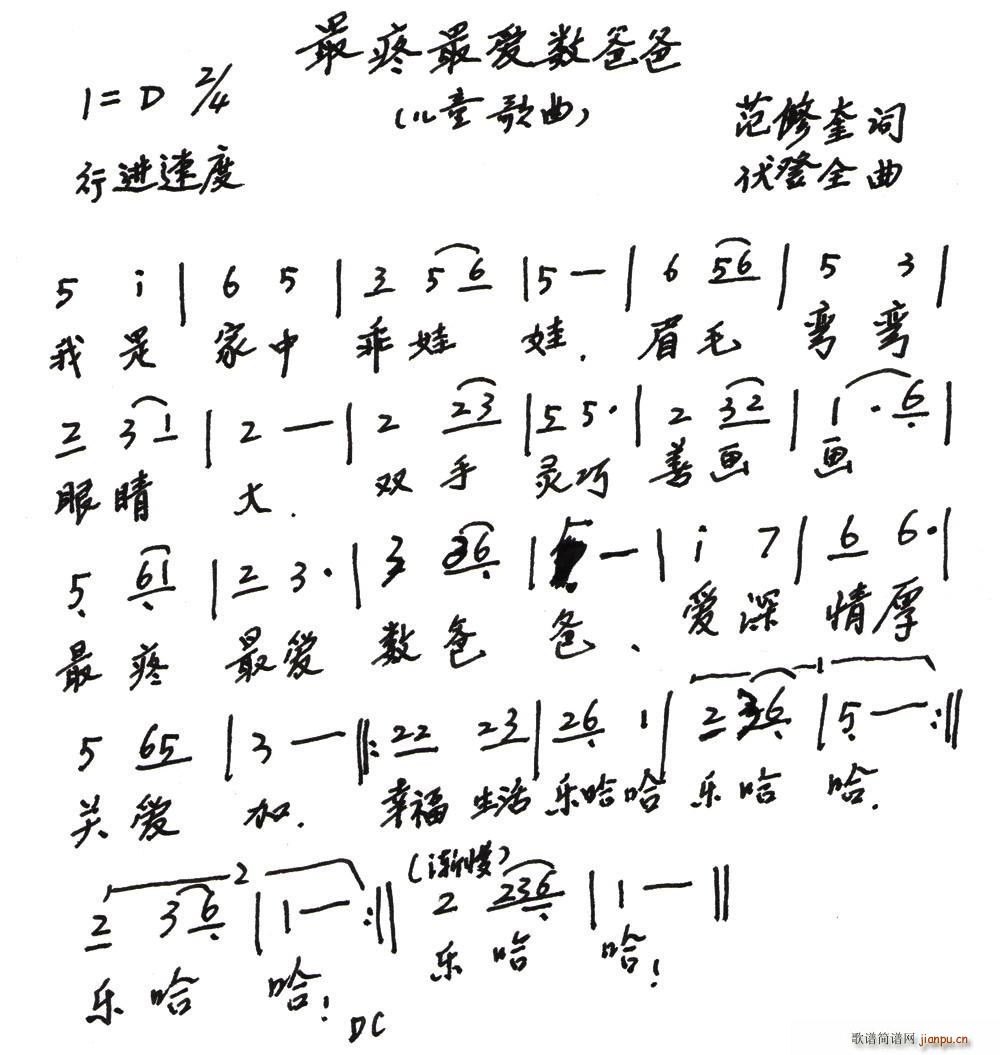 最疼最爱数爸爸
1=D 2/4
(儿童歌曲)
范修奎词
行进速度
伏登全曲
5 i | 6 5 | 3 5 6 | 5 — | 6 56 | 5 3 |
我是 家中 乖娃 娃. 眉毛 弯弯
2 3 1 | 2 — | 2 23 | 5 5· | 2 32 | 1 · 6 |
眼睛 大. 双手 灵巧 善画 画
5 61 | 2 3· | 3 36 | — | i 7 | 6 6· |
最疼 最爱 数爸 爸、 爱深 情厚
5 65 | 3 — ‖: 22 23 | 26 1 | 2 36 | 5 — :‖
关爱 加. 幸福 生活 乐哈哈 乐哈 哈.
2 (渐慢)
2 3 6 | 1 — :‖ 2 236 | 1 — ‖
乐哈 哈! 乐哈 哈!
DC
歌谱简谱网 jianpu.cn